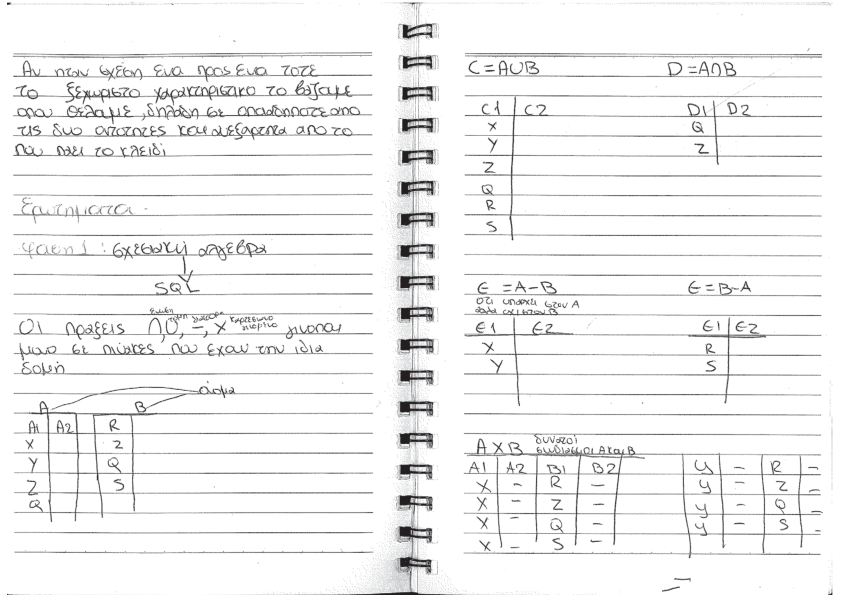 Αν ηταν σχεση ενα προς ενα τοτε
το ξεχωριστο χαρακτηριστικο το βαζαμε
οπου θελαμε, δηλαδη σε οποιαδηποτε απο
τις δυο οντοτητες και ανεξαρτητα απο το
που παει το κλειδι
Ερωτηματα.
φαση 1: σχεσιακη αλγεβρα
SQL
ενωση
τομη διαφορα καρτεσιανο γινομενο
Οι πραξεις ∩, U, -, x γινονται
μονο σε πινακες που εχουν την ιδια
δομη
ονομα
A B
A1 A2 R
X Z
Y Q
Z S
Q
C = A∪B D = A∩B
C1 C2 D1 D2
X Q
Y Z
Z
Q
R
S
E = A-B E = B-A
οτι υπαρχει στον A
αλλα οχι στον B
E1 E2 E1 E2
X R
Y S
A X B δυνατοι
συνδυασμοι A και B
A1 A2 B1 B2 y - R -
X - R - y - Z -
X - Z - y - Q -
X - Q - y - S -
X - S -